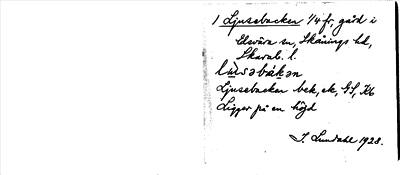 1 Ljusebacken 1/4 fr, gård i
Edsvära sn, Skånings hd,
Skarab. l.
lʉ̀sǝbákǝn
Ljusebacken bek, ek, GS, Kb
Ligger på en höjd
I. Lundahl 1928.